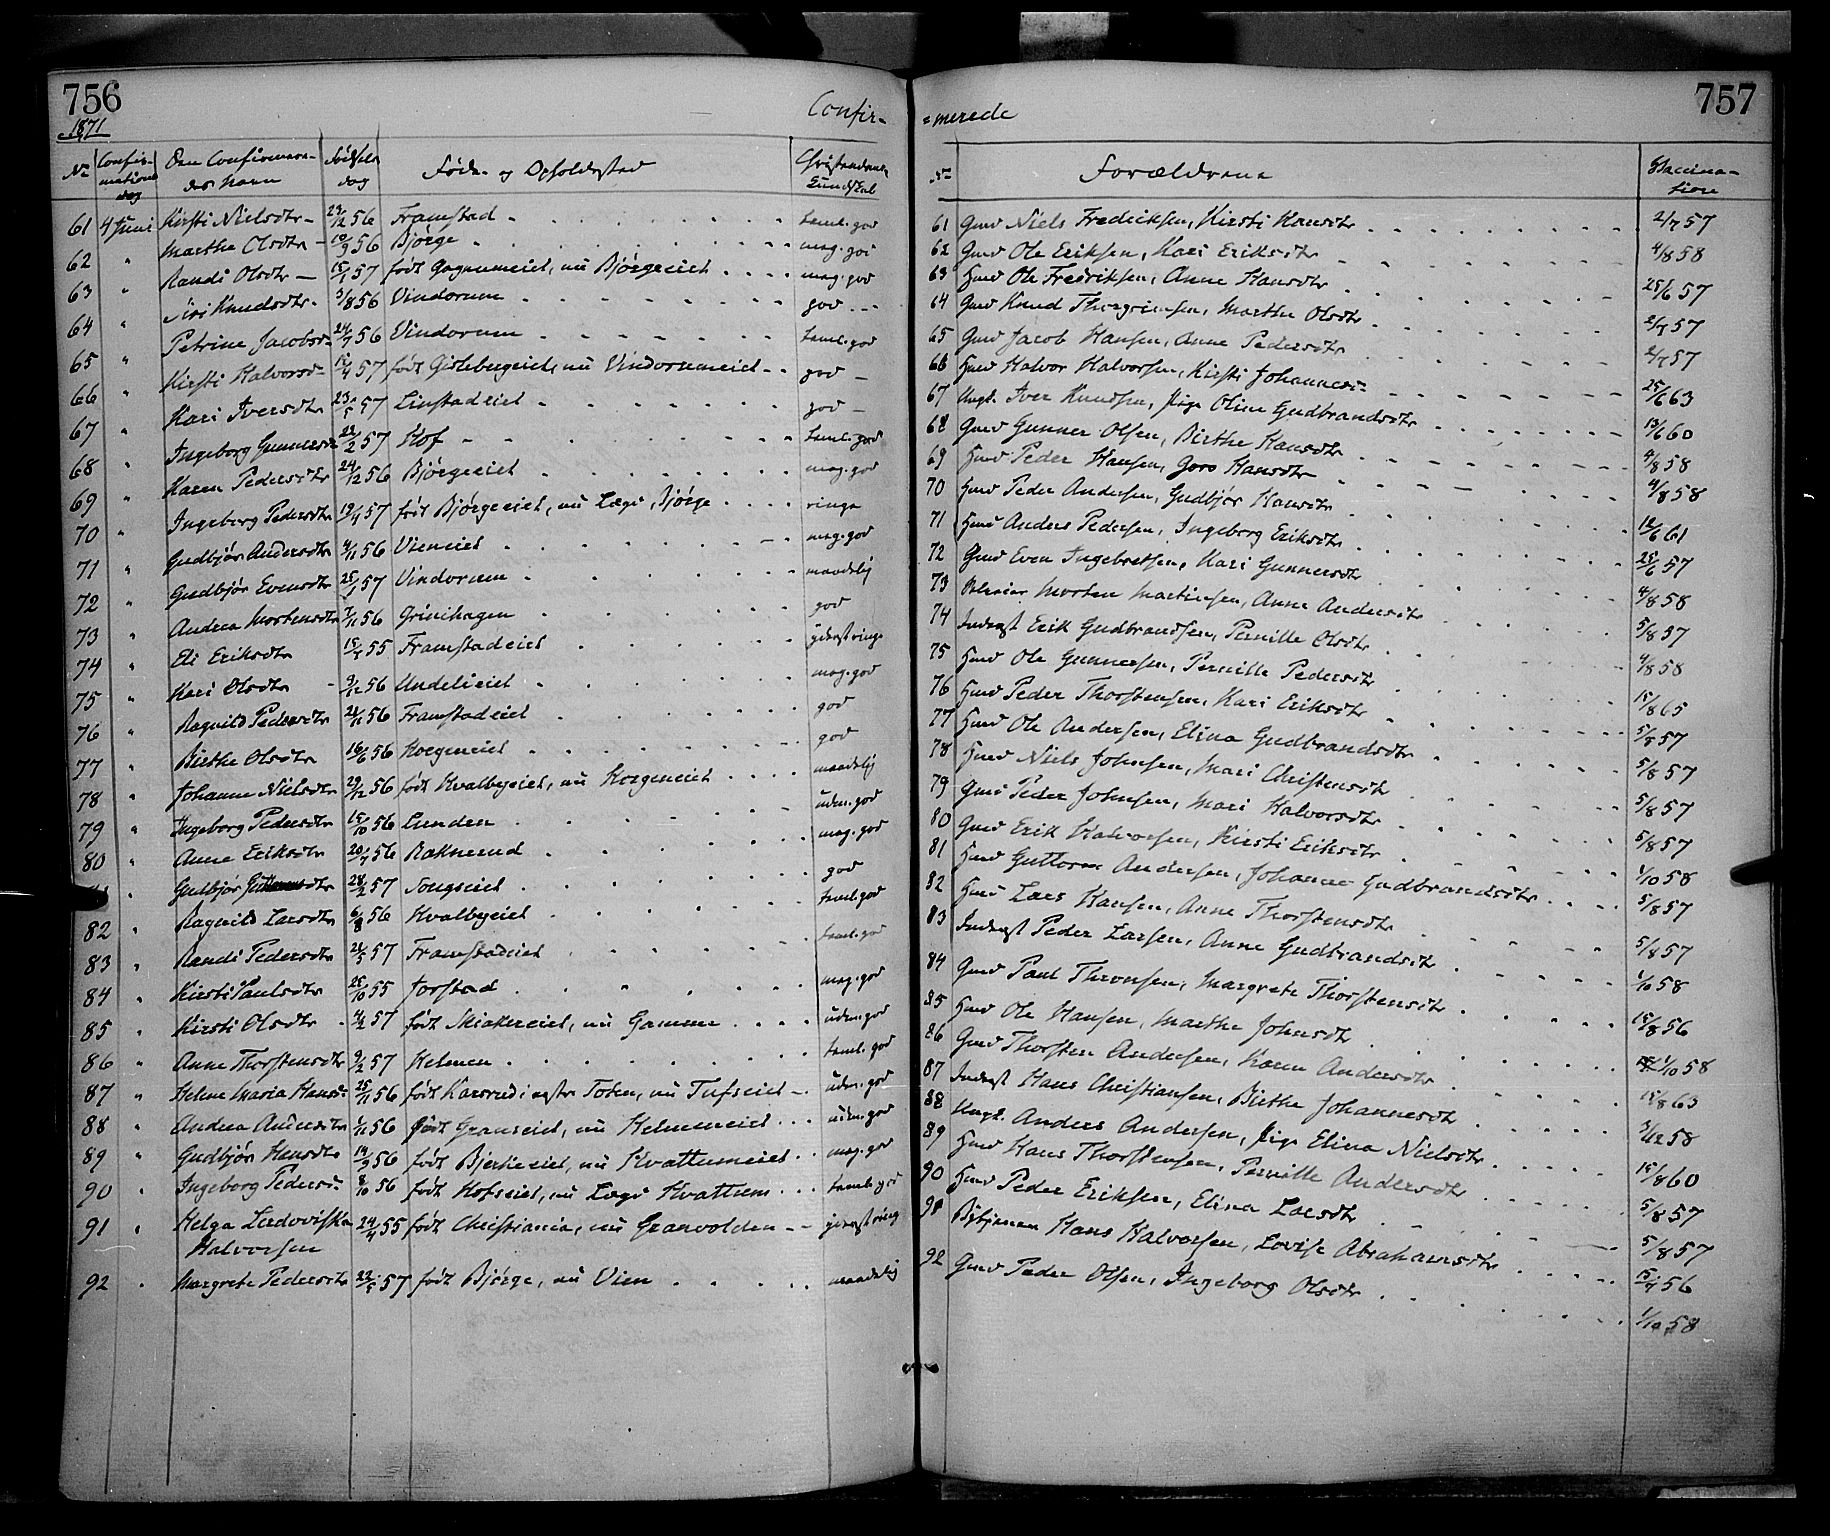 756
1871
Confir-
No Confir-mations dag Den Confirmere-des Navn Fødsels dag Føde- og Opholdssted Christendoms Kundskab
61 4 Juni Kirsti Nielsdtr 56 Framstad teml. god
62 " Marthe Olsdtr 10/9 56 Bjørge mag. god
63 " Randi Olsdtr 57 født Gagnumeiet, nu Bjørgeeiet mag. god
64 " Siri Knudsdtr 3/8 56 Vindorum god
65 " Petrine Jacobsd 56 Vindorum teml. god
66 " Kirsti Halvorsd 57 født Gislebergeiet, nu Vindorumeiet god
67 " Kari Iversdtr 57 Linstadeiet god
68 " Ingeborg Gunnersdtr 22/2 57 Hof teml. god
69 " Karen Pedersdtr 24/12 56 Bjørgeeiet mag. god
70 " Ingeborg Pedersdtr 57 født Bjørgeeiet, nu Lægd Bjørge ringe
71 " Gudbjør Andersdtr 4/11 56 Vieneiet mag. god
72 " Gudbjør Evensdtr 25/1 57 Vindorum maadelig
73 " Andrea Mortensdtr 7/11 56 Grinihagen god
74 " Eli Eriksdtr 55 Framstadeiet yderst ringe
75 " Kari Olsdtr 3/12 56 Undelieiet mag. god
76 " Ragnild Pedersdtr 56 Framstadeiet god
77 " Birthe Olsdtr 16/6 56 Korgeneiet god
78 " Johanne Nielsdtr 29/12 56 født Kvalbyeiet, nu Korgeneiet maadelig
79 " Ingeborg Pedersdtr 15/10 56 Lunden udm. god
80 " Anne Eriksdtr 56 Raknerud mag. god
" Gudbjør Guttormsdtr 28/2 57 Songseiet god
82 " Ragnild Larsdtr 6/8 56 Kvalbyeiet teml. god
83 " Randi Pedersdtr 57 Framstadeiet teml. god
84 " Kirsti Paulsdtr 25/10 55 Jorstad mag. god
85 " Kirsti Olsdtr 4/2 57 født Skiakereiet, nu Gamme udm. god
86 " Anne Thorstensdtr 9/2 57 Helmen teml. god
87 " Helene Maria Hansd 25/11 56 født Karsrud i vestre Toten, nu Tufseiet udm. god
88 " Andrea Andersdtr 1/11 56 født Granseiet, nu Helmeneiet udm. god
89 " Gudbjør Hansdtr 19/9 56 født Bjerkeeiet, nu Hvattumeiet mag. god
90 " Ingeborg Pedersd 8/10 56 født Hofseiet, nu Lægd Hvattum teml. god
91 " Helga Ludoviska 24/4 55 født Christiania, nu Granvolden yderst ring
Halvorsen
92 " Margrete Pedersdtr 57 født Bjørge, nu Vien maadelig
757
-merede
No Forældrene Vaccina-tion
61 Gmd Niels Fredriksen, Kirsti Hansdtr 2/7 57
62 Gmd Ole Eriksen, Kari Eriksdtr 4/8 58
63 Hmd Ole Fredriksen, Anne Hansdtr 25/6 57
64 Gmd Knud Thorgrimsen, Marthe Olsdtr 2/7 57
65 Gmd Jacob Hansen, Anne Pedersdtr 2/7 57
66 Hmd Halvor Halvorsen, Kirsti Johannesd 25/6 63
67 Ungk. Iver Knudsen, Pige Oline Gudbrandsdtr 13/6 60
68 Gmd Gunner Olsen, Birthe Hansdtr 4/8 58
69 Hmd Peder Hansen, Goro Hansdtr 4/8 58
70 Hmd Peder Andersen, Gudbjør Hansdtr 12/6 61
71 Hmd Anders Pedersen, Ingeborg Eriksdtr 25/6 57
72 Gmd Even Ingebretsen, Kari Gunnersdtr 4/8 58
73 Morten Martinsen, Anne Andersdtr 5/8 57
74 Inderst Erik Gudbrandsen, Pernille Olsdtr 4/8 58
75 Hmd Ole Gunnersen, Pernille Pedersdtr 15/8 65
76 Hmd Peder Thorstensen, Kari Eriksdtr 5/8 57
77 Hmd Ole Andersen, Elina Gudbrandsdtr 5/8 57
78 Hmd Niels Johnsen, Mari Christensdtr 5/8 57
79 Gmd Peder Johnsen, Mari Halvorsdtr 5/8 57
80 Gmd Erik Halvorsen, Kirsti Eriksdtr 1/10 58
81 Hmd Guttorm Andersen, Johanne Gudbrandsdtr 5/8 57
82 Hmd Lars Hansen, Anne Thorstensdtr 5/8 57
83 Inderst Peder Larsen, Anne Gudbrandsdtr 1/10 58
84 Gmd Paul Thronsen, Margrete Thorstensdtr 15/8 56
85 Hmd Ole Hansen, Marthe Johnsdtr 1/10 58
86 Gmd Thorsten Andersen, Karen Andersdtr 15/8 63
87 Inderst Hans Christiansen, Birthe Johannesdtr 3/12 58
88 Ungk. Anders Andersen, Pige Elina Nielsdtr 15/8 60
89 Hmd Hans Thorstensen, Pernille Andersdtr 5/8 57
90 Hmd Peder Eriksen, Elina Larsdtr 5/8 57
91 Hans Halvorsen, Lovise Abrahamsdtr 56
92 Gmd Peder Olsen, Ingeborg Olsdtr 1/10 58